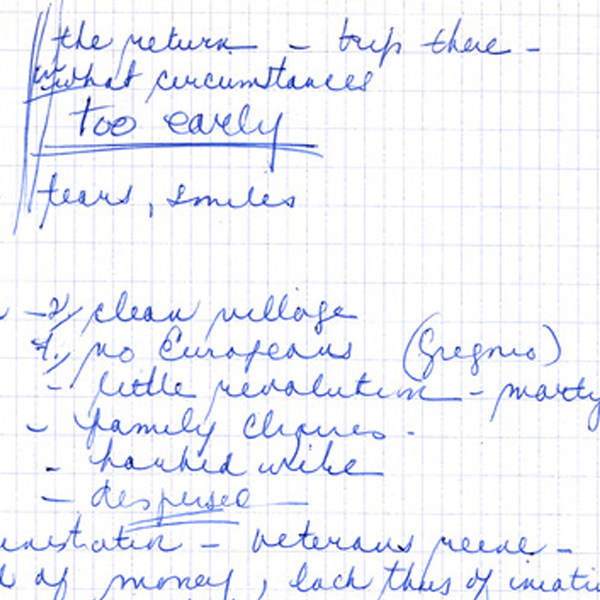 the return - trip there -
in what circumstances
too early
tears, smiles
- 2, clean village
1, no Europeans (Gregorio)
- little revolution - marty
- family
- barbed wire
- dispersed -
- veterans
of money, lack thus of